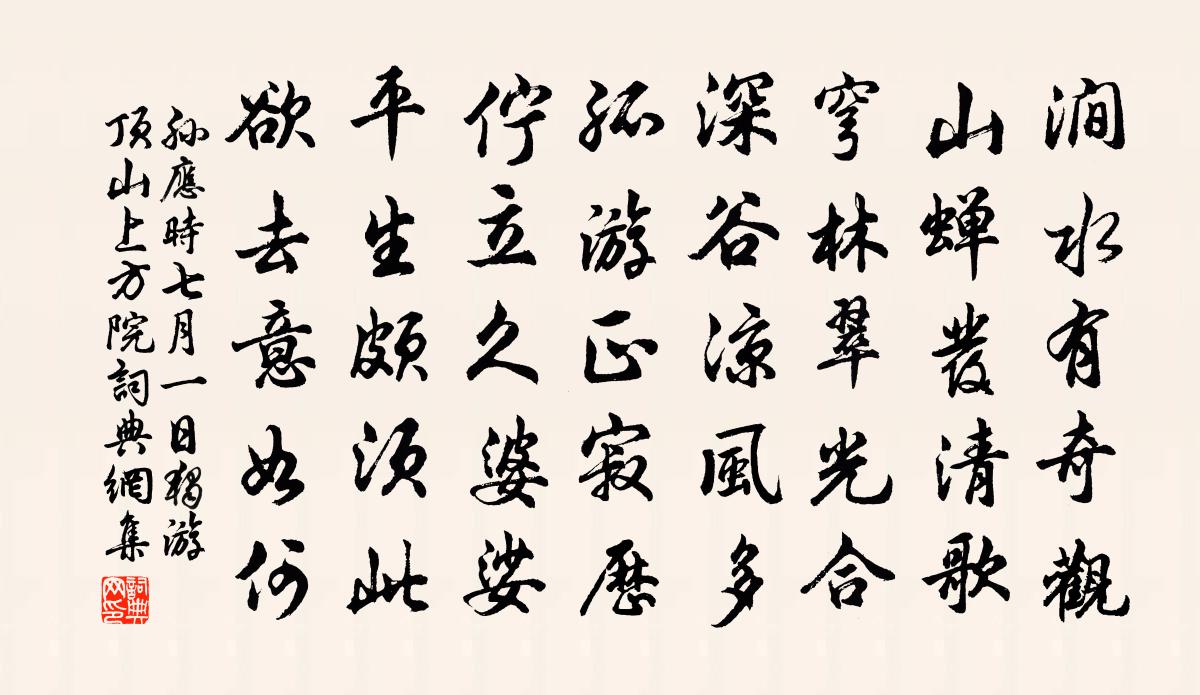 澗水有奇觀
山蟬發清歌
穹林翠光合
深谷涼風多
孤游正寂歷
佇立久婆娑
平生頗須此
欲去意如何
孫應時七月一日獨游
頂山上方院詞典網集
詞典網印